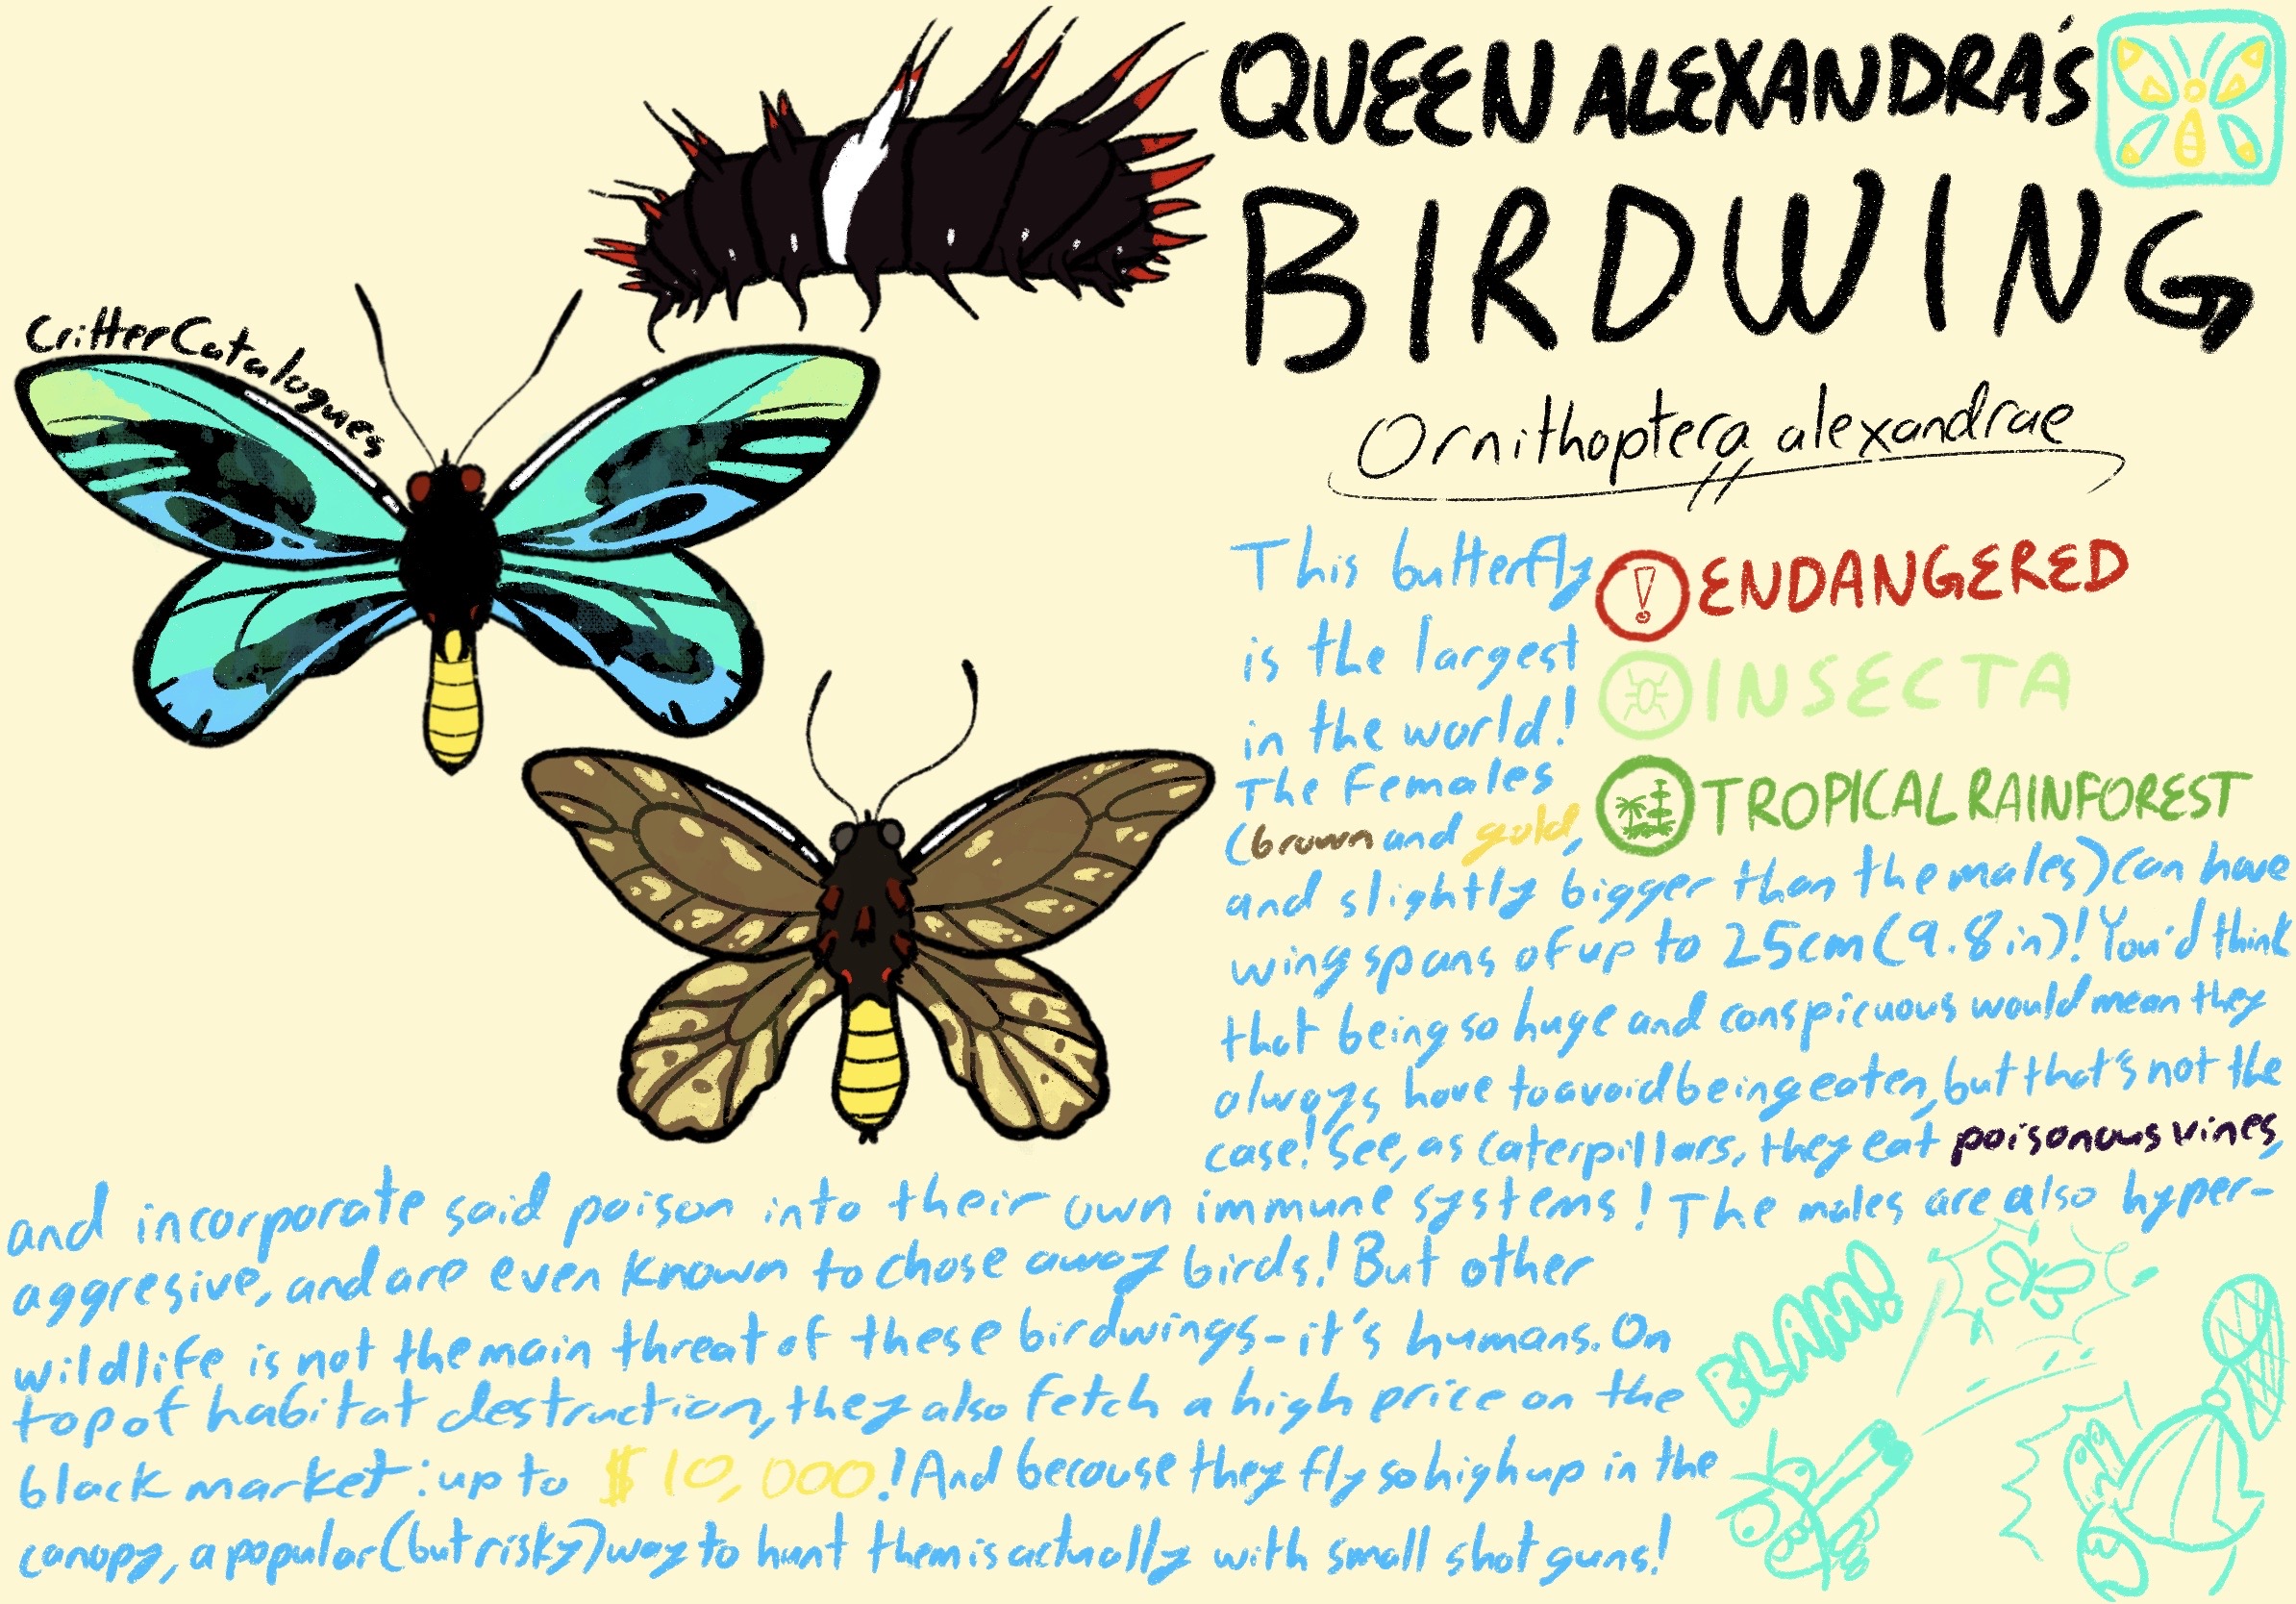 QUEEN ALEXANDRA'S
BIRDWING
Ornithoptera alexandrae
CritterCatalogues
ENDANGERED
INSECTA
TROPICAL RAINFOREST
This butterfly
is the largest
in the world!
The females
(brown and gold,
and slightly bigger than the males) can have
wingspans of up to 25cm (9.8in)! You'd think
that being so huge and conspicuous would mean they
always have to avoid being eaten, but that's not the
case! See, as caterpillars, they eat poisonous vines,
and incorporate said poison into their own immune systems! The males are also hyper-
aggresive, and are even known to chase away birds! But other
wildlife is not the main threat of these birdwings - it's humans. On
top of habitat destruction, they also fetch a high price on the
black market: up to $10,000! And because they fly so high up in the
canopy, a popular (but risky) way to hunt them is actually with small shotguns!
BLAM!